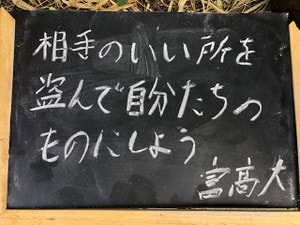 相手のいい所を
盗んで自分たちの
ものにしよう
富高大